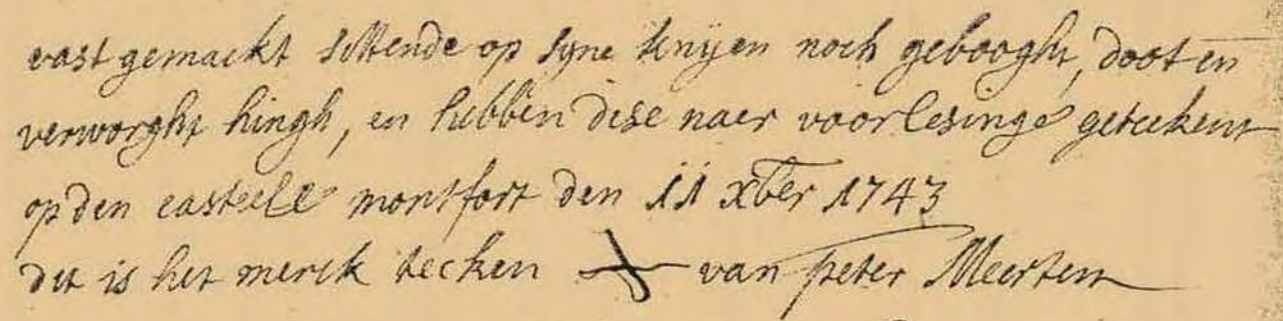 vast gemackt sittende op syne knijen noch gebooght, doot en
verworght hingh, en hebben dese naer voorlesinge geteekent
op den casteele montfort den 11 xber 1743
dit is het merck teeken van peter Meertens